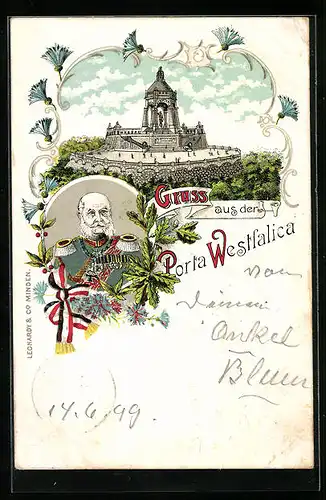 Gruss
aus der
Porta Westfalica
von
Deinem
Onkel
Blum
14.6.99.
LEONHARDY & CO MINDEN.